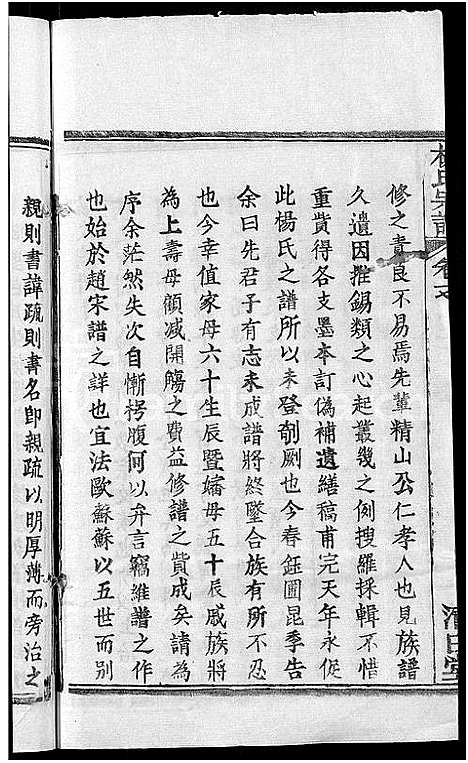 楊氏宗譜
卷之
修之責良不易焉先輩精山公仁孝人也見族譜
久遺因推錫類之心起叢幾之例搜羅採輯不惜
重貲得各支墨本訂偽補遺繕稿甫完天年永促
此楊氏之譜所以未登剞劂也今春鈺圃昆季告
余曰先君子有志未成譜將終墜合族有所不忍
也今幸值家母六十生辰暨嬸母五十辰戚族將
為上壽母願減開觴之費益修譜之貲成矣請為
序余茫然失次自慚枵腹何以弁言竊維譜之作
也始於趙宋譜之詳也宜法歐蘇蘇以五世而別
親則書諱疏則書名即親疏以明厚薄而旁治之